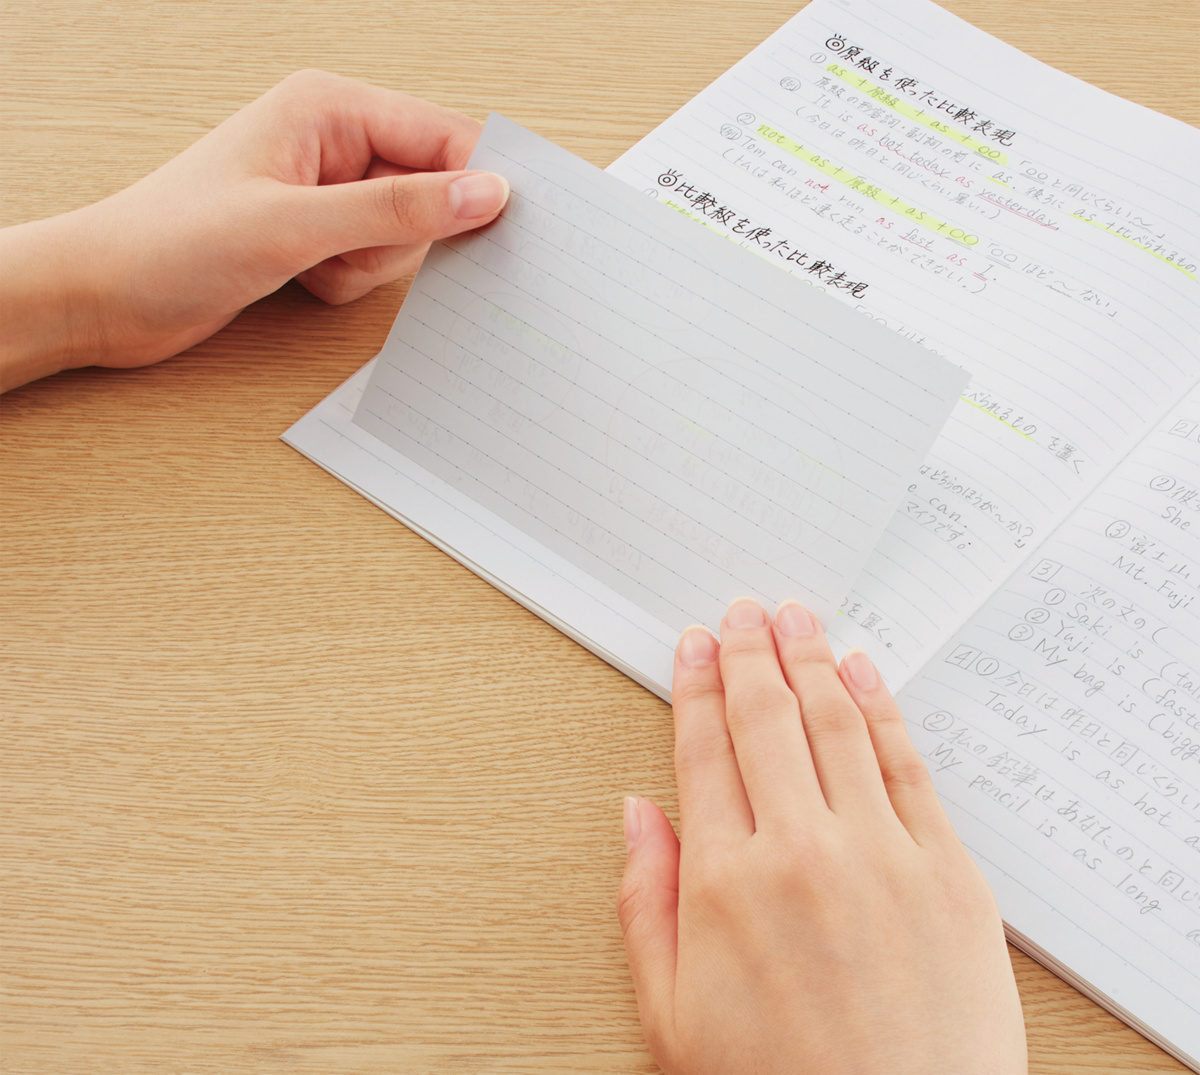 ◎原級を使った比較表現
① as + 原級 + as + ○○ 「○○と同じくらい〜」
原級の形容詞・副詞の前に as、後ろに as + 比べられるもの
例 It is as hot today as yesterday.
(今日は昨日と同じくらい暑い。)
② not + as + 原級 + as + ○○ 「○○ほど〜ない」
例 Tom can not run as fast as I.
(トムは私ほど速く走ることができない。)
◎比較級を使った比較表現
①
べられるもの を置く
はどちらのほうが〜か?」
e can.
マイクです。
を置く。
2
②
She
③ 富士山
Mt. Fuji
3 次の文の(
① Saki is (ta
② Yuji is (fast
③ My bag is (bigg
4 ① 今日は昨日と同じくらい
Today is as hot a
② 私の鉛筆はあなたのと同じ
My pencil is as long a